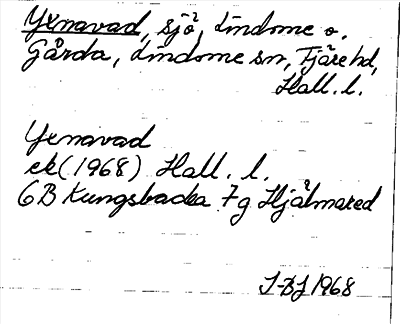 Yxnavad, sjö, Lindome o.
Gårda, Lindome sn, Fjäre hd,
Hall. l.
Yxnavad
ek(1968) Hall. l.
6B Kungsbacka 7g Hjälmared
1968